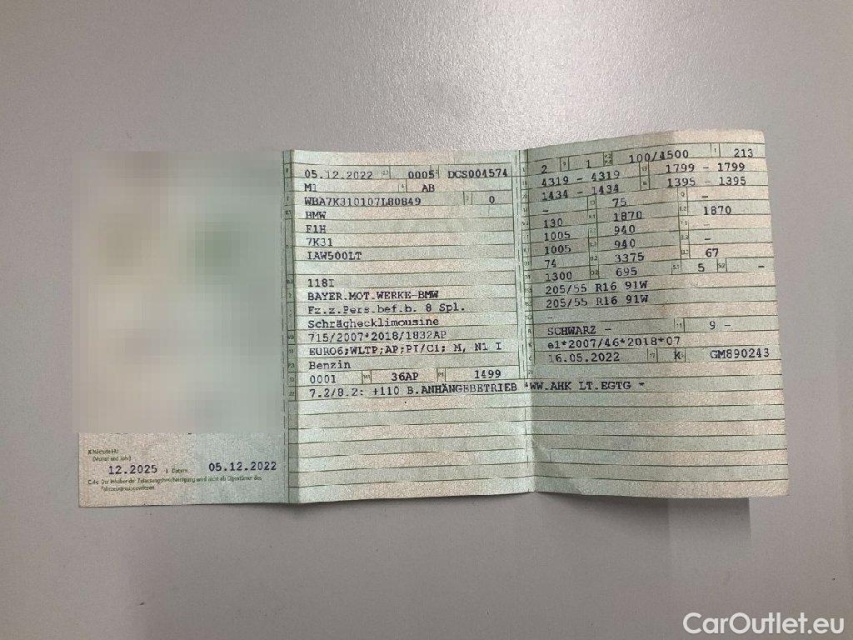 12.2025 05.12.2022
05.12.2022 0005 DCS004574
M1 AB
WBA7K310107L80849 0
BMW
F1H
7K31
IAW500LT
118I
BAYER.MOT.WERKE-BMW
Fz.z.Pers.bef.b. 8 Spl.
Schräghecklimousine
715/2007*2018/1832AP
EURO6;WLTP;AP;PI/CI; M, N1 I
Benzin
0001 36AP 1499
7.2/8.2: +110 B.ANHÄNGEBETRIEB *WW.AHK LT.EGTG *
2 1 100/4500 213
4319 - 4319 1799 - 1799
1434 - 1434 1395 - 1395
- 75 -
130 1870 1870
1005 940 -
1005 940 -
74 3375 67
1300 695 5 -
205/55 R16 91W
205/55 R16 91W
SCHWARZ - 9 -
e1*2007/46*2018*07
16.05.2022 K GM890243
CarOutlet.eu